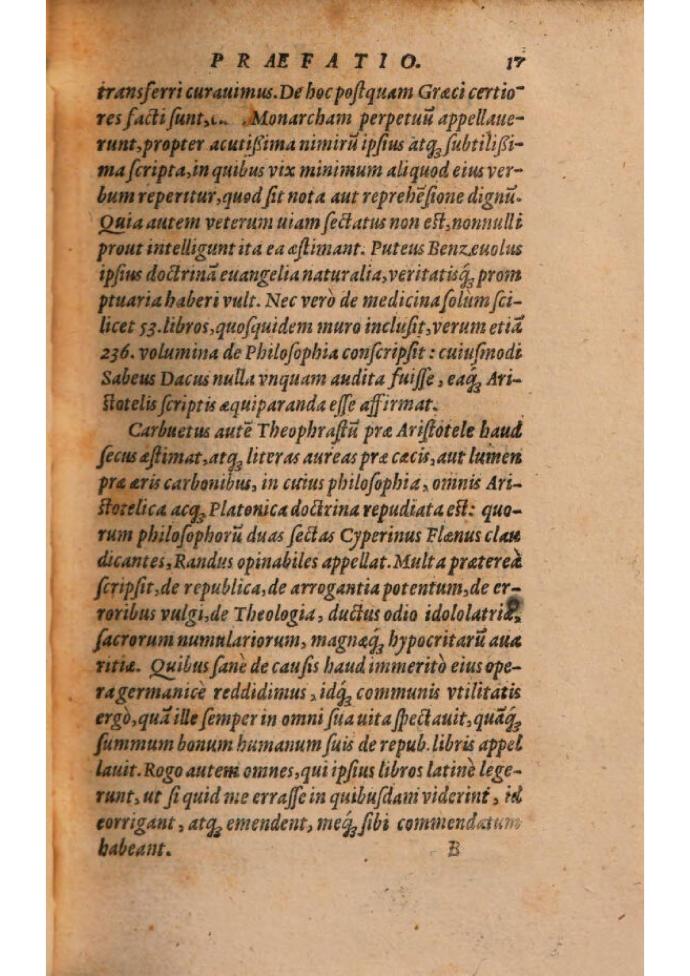 PRAEFATIO. 17
transferri curauimus. De hoc postquam Græci certio-
res facti sunt, Monarcham perpetuũ appellaue-
runt, propter acutißima nimirũ ipsius atqꝫ subtilißi-
ma scripta, in quibus vix minimum aliquod eius ver-
bum reperitur, quod sit nota aut reprehẽsione dignũ.
Quia autem veterum uiam sectatus non est, nonnulli
prout intelligunt ita ea æstimant. Puteus Benzæuolus
ipsius doctrinã euangelia naturalia, veritatisq́ꝫ prom
ptuaria haberi vult. Nec verò de medicina solùm sci-
licet 53. libros, quosquidem muro inclusit, verum etiã
236. volumina de Philosophia conscripsit: cuiusmodi
Sabeus Dacus nulla vnquam audita fuisse, eaq́ꝫ Ari-
stotelis scriptis æquiparanda esse affirmat.
Carbuetus autẽ Theophrastũ præ Aristotele haud
secus æstimat, atqꝫ literas aureas præ cæcis, aut lumen
præ æris carbonibus, in cuius philosophia, omnis Ari-
stotelica acqꝫ Platonica doctrina repudiata est: quo-
rum philosophorũ duas sectas Cyperinus Flænus clau
dicantes, Randus opinabiles appellat. Multa prætereà
scripsit, de republica, de arrogantia potentum, de er-
roribus vulgi, de Theologia, ductus odio idololatriæ,
sacrorum numulariorum, magnæq́ꝫ hypocritarũ aua
ritiæ. Quibus sanè de causis haud immeritò eius ope-
ra germanicè reddidimus, idq́ꝫ communis vtilitatis
ergò, quã ille semper in omni sua uita spectauit, quãq́ꝫ
summum bonum humanum suis de repub. libris appel
lauit. Rogo autem omnes, qui ipsius libros latinè lege-
runt, ut si quid me errasse in quibusdam viderint, id
corrigant, atqꝫ emendent, meq́ꝫ sibi commendatum
habeant. B